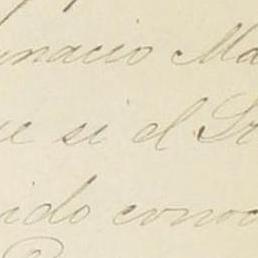 nacio Ma
e si el Sr
ido conoc